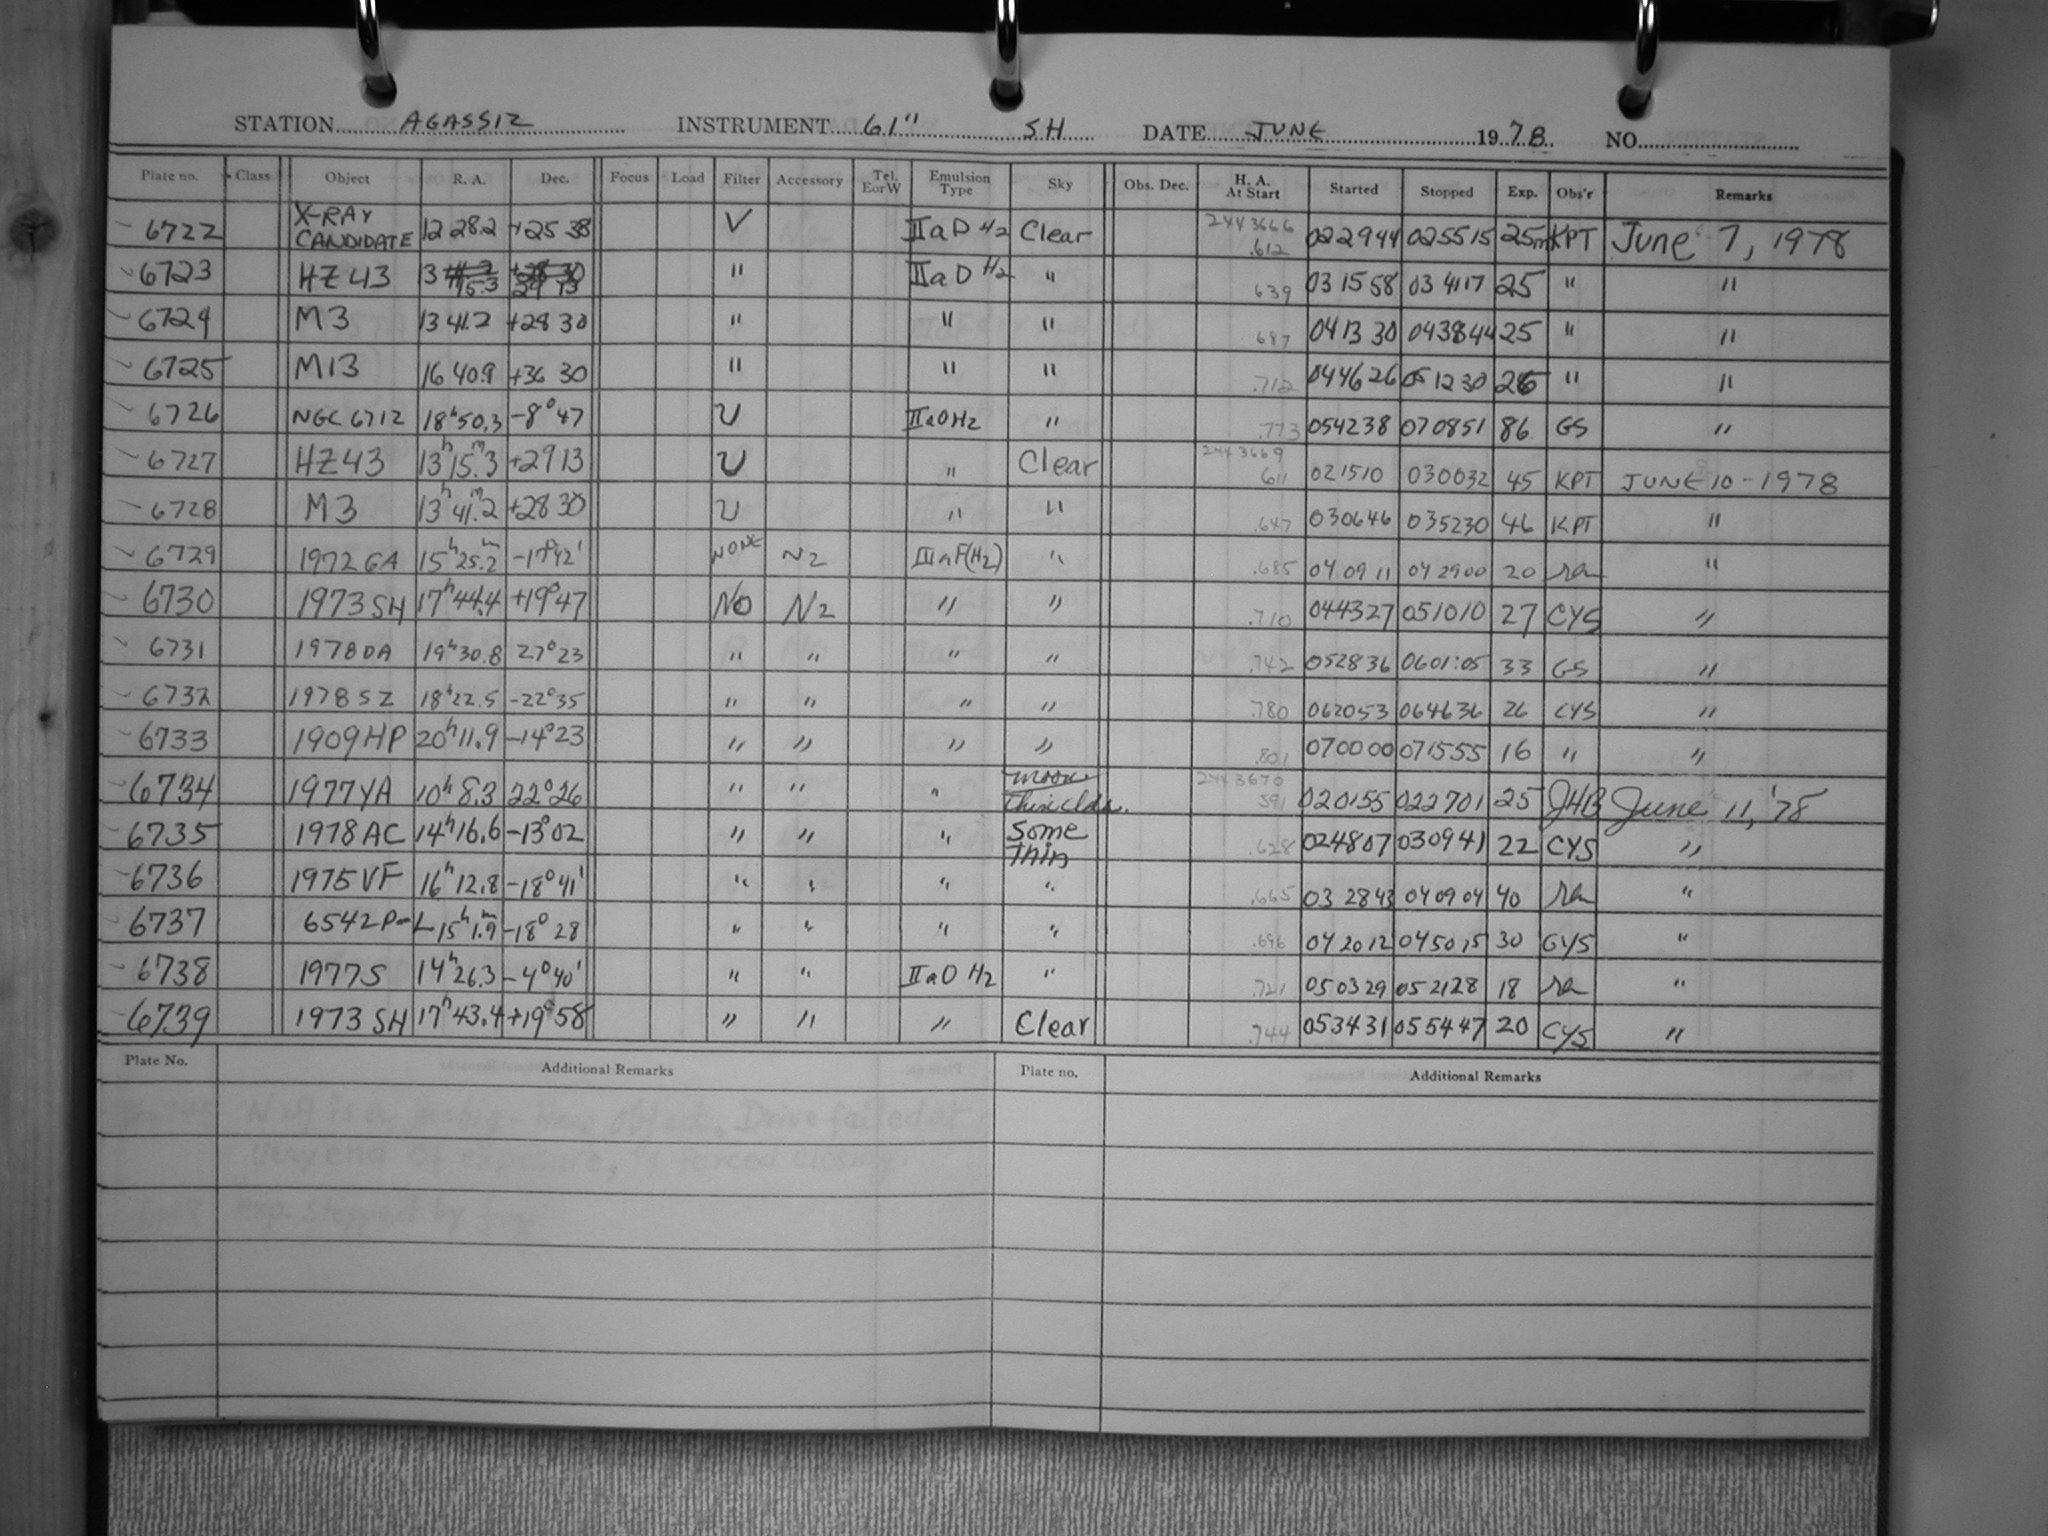 STATION AGASSIZ INSTRUMENT 61" SH DATE JUNE 1978 NO.
Plate no. Class Object R. A. Dec. Focus Load Filter Accessory Tel. EorW Emulsion Type Sky Obs. Dec. H. A. At Start Started Stopped Exp. Obs'r Remarks
6722 X-RAY CANDIDATE 12 28.2 +25 38 V IIaD H2 Clear 2443666 .612 022944 025515 25m KPT June 7, 1978
6723 HZ43 13 15.3 29 13 " IIaD H2 " 639 031558 034117 25 " "
6724 M3 13 41.2 +28 30 " " " 687 041330 043844 25 " "
6725 M13 16 40.9 +36 30 " " " .712 044626 051230 26 " "
6726 NGC 6712 18h50.3 -8°47 U IIaO H2 " .773 054238 070851 86 GS "
6727 HZ43 13h15.3m +29 13 U " Clear 2443669 611 021510 030032 45 KPT JUNE 10-1978
6728 M3 13h41.2m +28 30 U " " .647 030646 035230 46 KPT "
6729 1972GA 15h25.2m -17°42' NONE N2 IIIaF(H2) " .685 040911 042900 20 ra "
6730 1973SH 17h44.4 +19°47 NO N2 " " .710 044327 051010 27 CYS "
6731 1978DA 19h30.8 27°23 " " " " .742 052836 0601:05 33 GS "
6732 1978SZ 18h22.5 -22°35 " " " " .780 062053 064636 26 CYS "
6733 1909HP 20h11.9 -14°23 " " " " .801 070000 071555 16 " "
6734 1977YA 10h8.3 22°26 " " " moon thin clds. 2443670 591 020155 022701 25 JHB June 11, '78
6735 1978AC 14h16.6 -13°02 " " " Some Thin .628 024807 030941 22 CYS "
6736 1975VF 16h12.8 -18°41' " " " " .665 032843 040904 40 ra "
6737 6542P-L 15h1.9m -18°28 " " " " .696 042012 045015 30 CYS "
6738 1977S 14h26.3 -4°40' " " IIaO H2 " .721 050329 052128 18 ra "
6739 1973SH 17h43.4 +19°58 " " " Clear .744 053431 055447 20 CYS "
Plate No. Additional Remarks Plate no. Additional Remarks